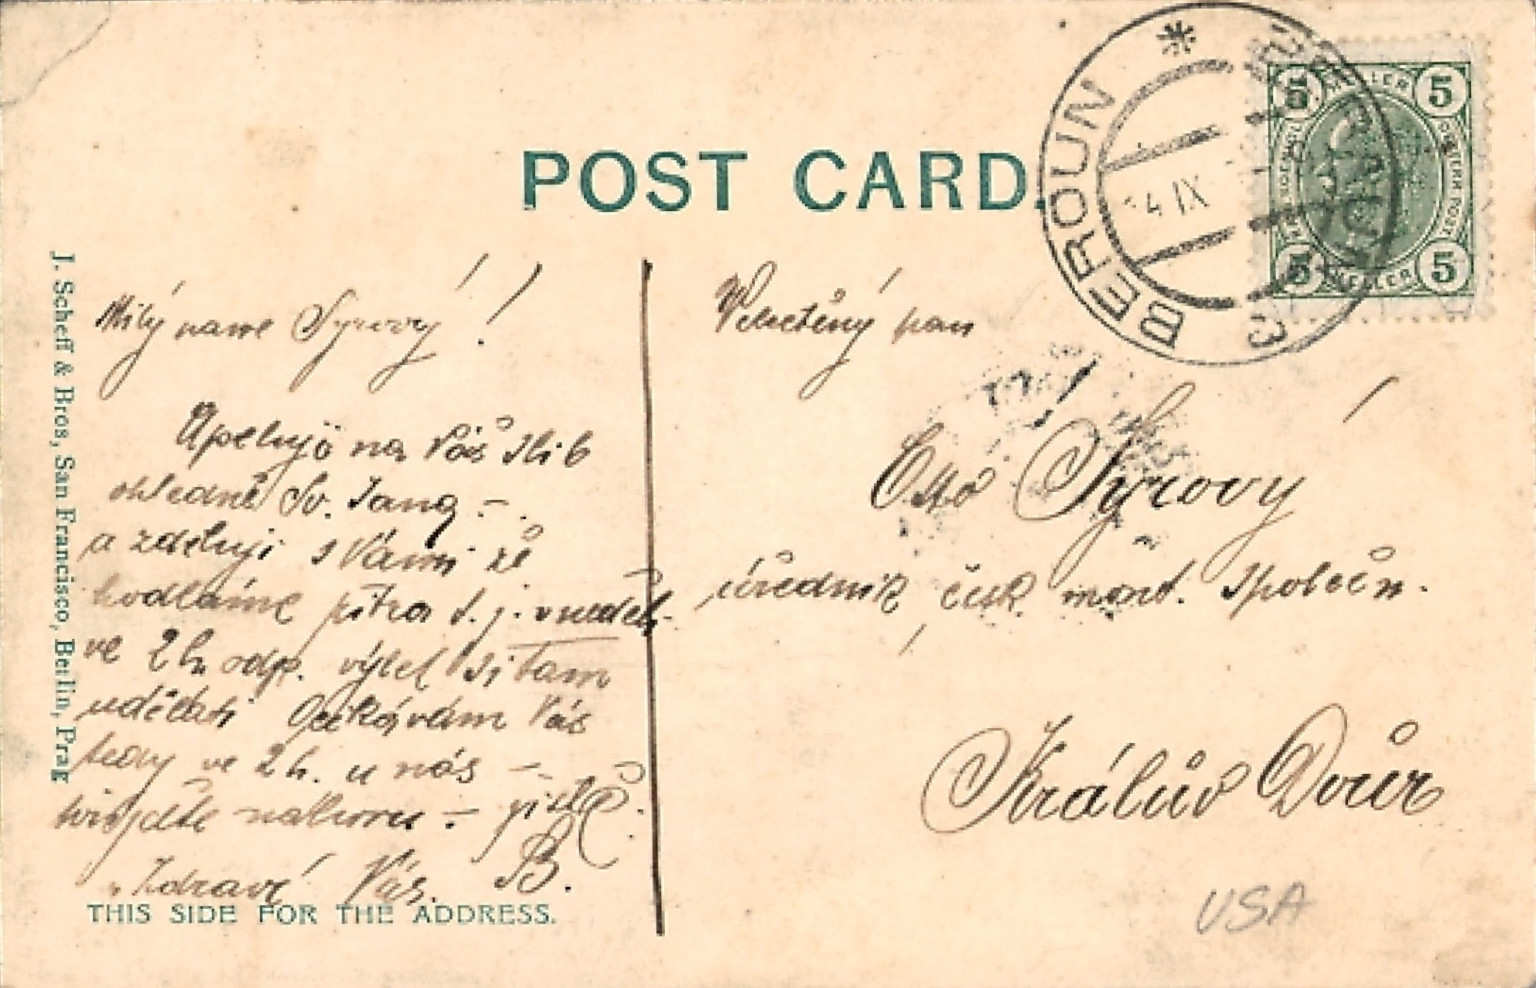 POST CARD.
BEROUN
4 IX
3
5 5
HELLER
5 5
HELLER
J. Scheff & Bros, San Francisco, Berlin, Prag
Milý pane Syrový!
Apeluji na Váš slib
ohledně Sv. Jana –
a zděluji s Vámi že
hodláme zítra t. j. v neděli
ve 2 h odp. výlet si tam
udělati Očekávám Vás
tedy ve 2 h. u nás –
nahoru – jistě
Zdraví Vás. B.
THIS SIDE FOR THE ADDRESS.
Velectěný pan
Otto Syrový
úředník, česk. mont. společn.
Králův Dvůr
USA